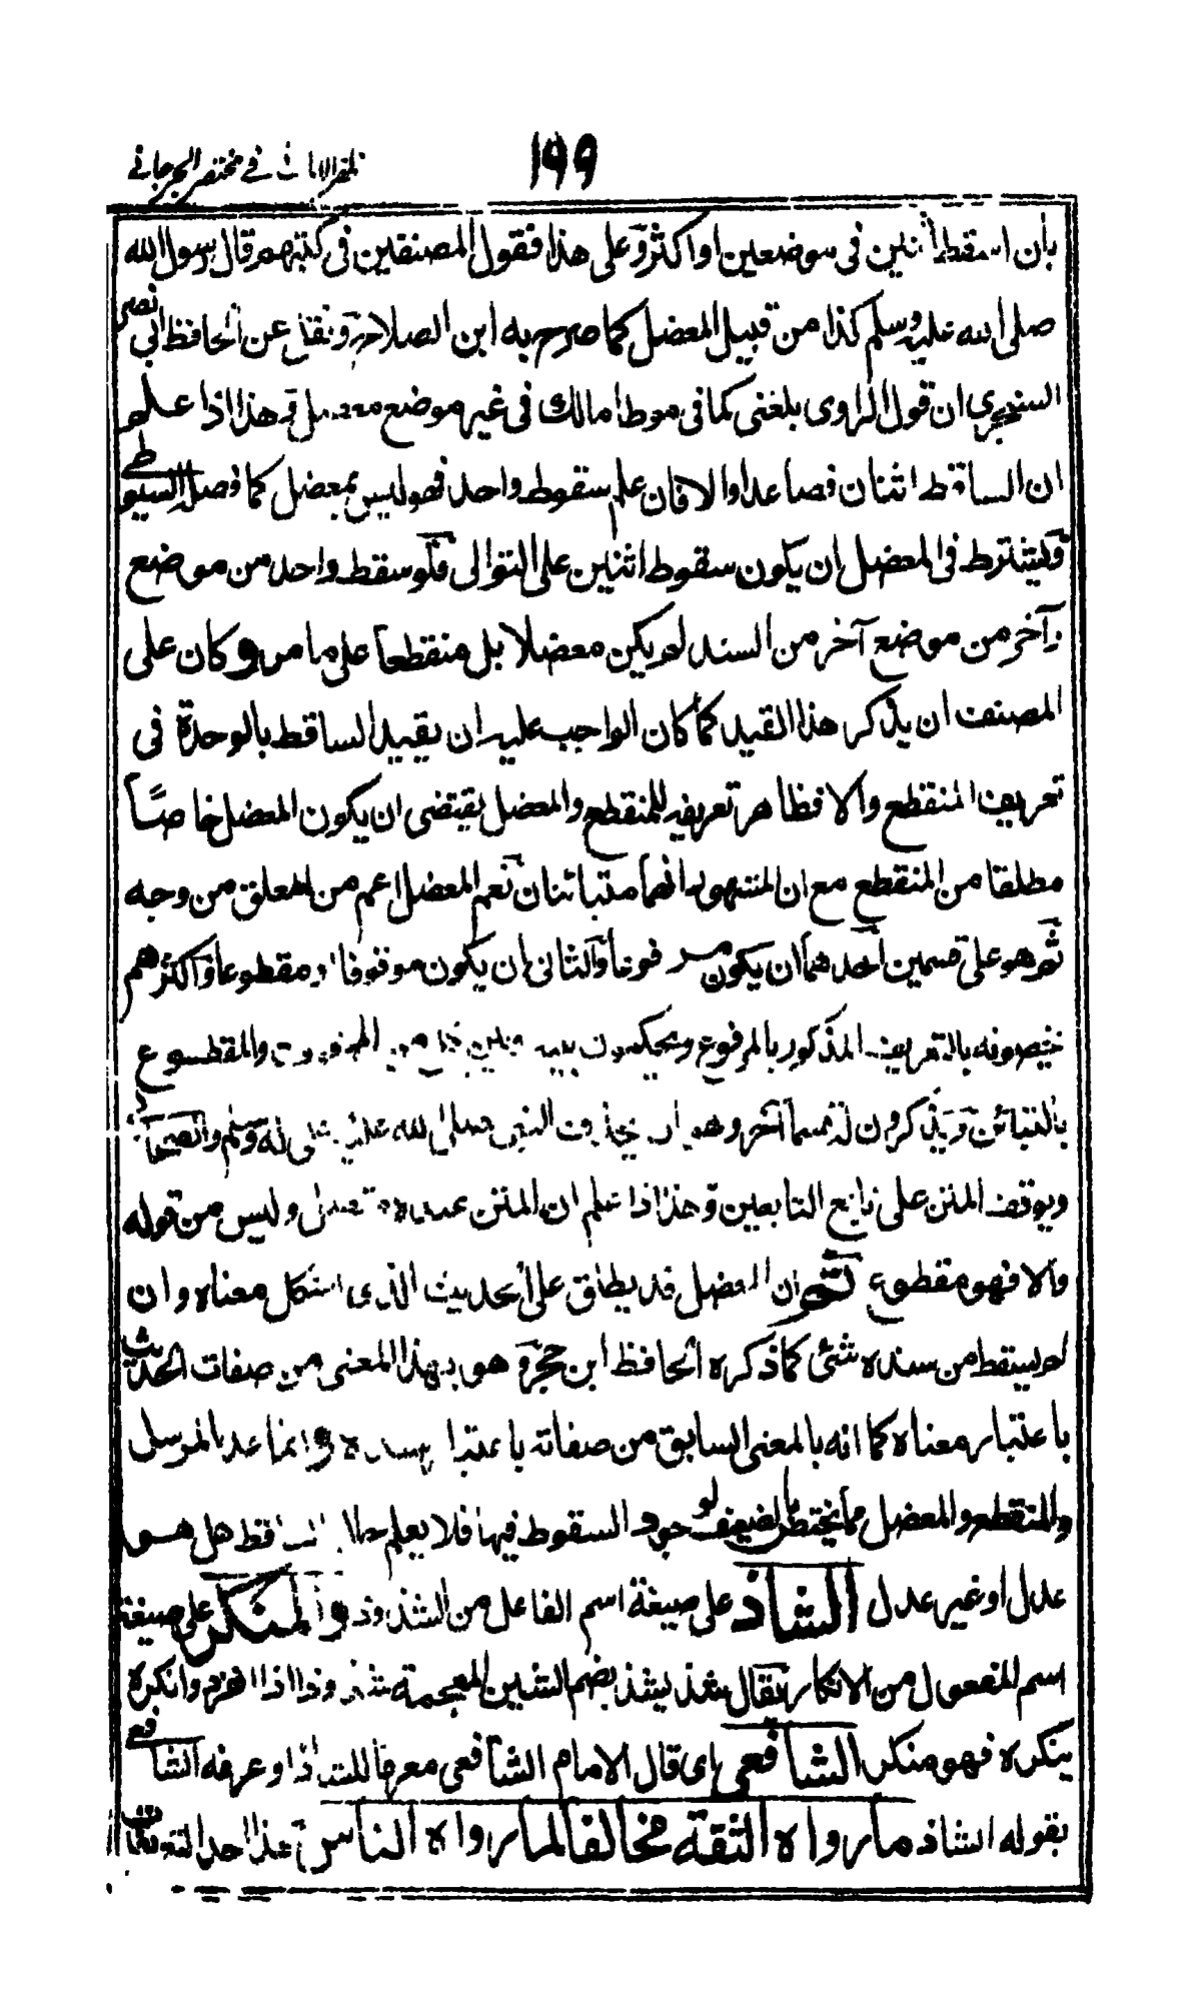 ١٩٩
ظفر الاماني في مختصر الجرجاني
بأن اسقط اثنين فى موضعين او اكثر وعلى هذا فقول المصنفين فى كتبهم قال رسول الله
صلى الله عليه وسلم كذا من قبيل المعضل كما صرح به ابن الصلاح ونقل عن الحافظ ابى نصر
السنجرى ان قول الراوى بلغنى كما فى موطا مالك فى غير موضع معضل وهذا اذا علم
ان الساقط اثنان فصاعدا والا فان علم سقوط واحد فهو ليس بمعضل كما فصله السيوطى
ويشترط فى المعضل ان يكون سقوط اثنين على التوالى فلو سقط واحد من موضع
وآخر من موضع آخر من السند لم يكن معضلا بل منقطعا على ما مر وكان على
المصنف ان يذكر هذا القيد كما كان الواجب عليه ان يقييد الساقط بالوحدة فى
تعريف المنقطع والا فظاهر تعريفه للمنقطع والمعضل يقتضى ان يكون المعضل خاصًا
مطلقا من المنقطع مع ان المشهور انهما متبائنان نعم المعضل اعم من المعلق من وجه
ثم هو على قسمين احدهما ان يكون مرفوعا والثانى ان يكون موقوفا او مقطوعا واكثرهم
يخصونه بالتعريف المذكور بالمرفوع ويحكمون بينه وبين الموقوف والمقطوع
بالتبائن ويذكرون له قسما آخر وهو ان يحذف النبى صلى الله عليه وعلى آله وسلم والصحابى
ويوقف المتن على تابع التابعين وهذا اذا علم ان المتن عنده متصل وليس من قوله
والا فهو مقطوع ثم ان المعضل قد يطلق على الحديث الذى اشكل معناه وان
لم يسقط من سنده شئ كما ذكره الحافظ ابن حجر وهو بهذا المعنى من صفات الحديث
باعتبار معناه كما انه بالمعنى السابق من صفاته باعتبار سنده وانما عد المرسل
والمنقطع والمعضل مما يختص بالضعيف لوجود السقوط فيها فلا يعلم حال الساقط هل هو
عدل او غير عدل الشاذ على صيغة اسم الفاعل من الشذوذ والمنكر على صيغة
اسم المفعول من الانكار يقال شذ يشذ بضم الشين المعجمة شذوذا اذا انفرد وانكره
ينكره فهو منكر الشافعى اى قال الامام الشافعى معرفا للشاذ او عرفه الشافعى
بقوله الشاذ ما رواه الثقة مخالفا لما رواه الناس هذا احد التعريفات